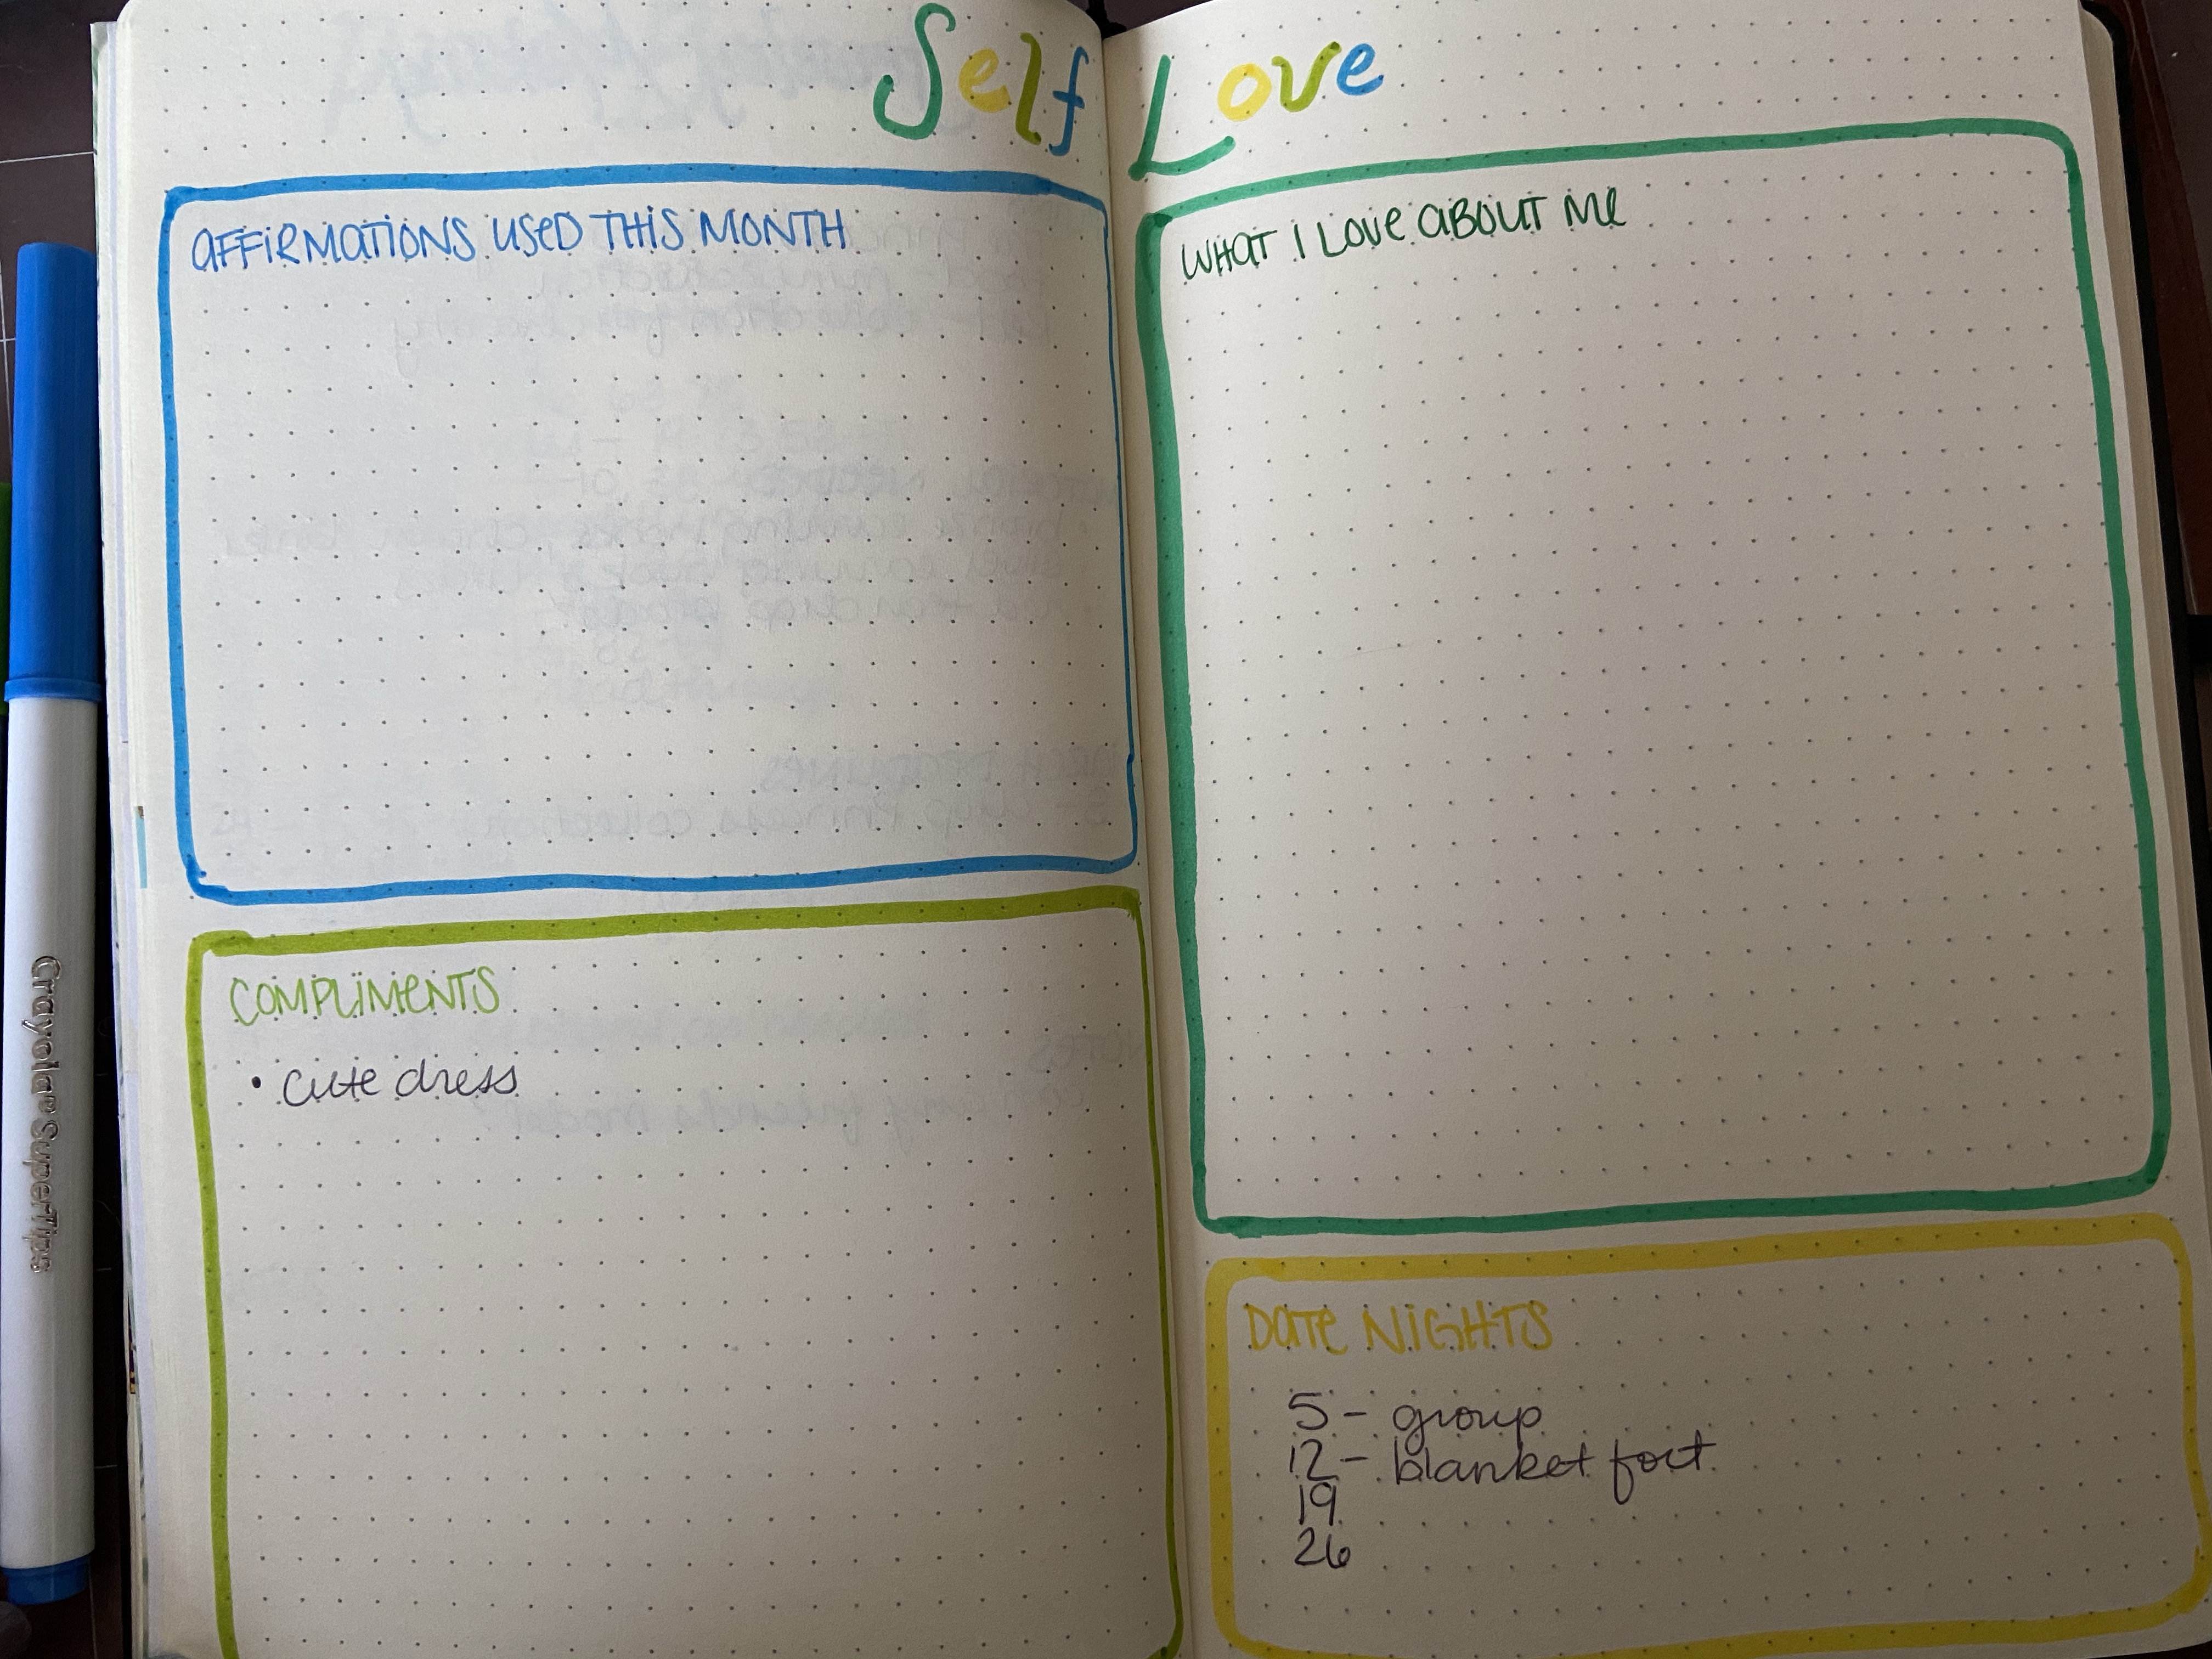 Self Love
AFFIRMATIONS USED THIS MONTH
COMPLIMENTS
• cute dress
WHAT I LOVE ABOUT ME
DATE NIGHTS
5 – group
12 – blanket fort
19
26
Crayola SuperTips